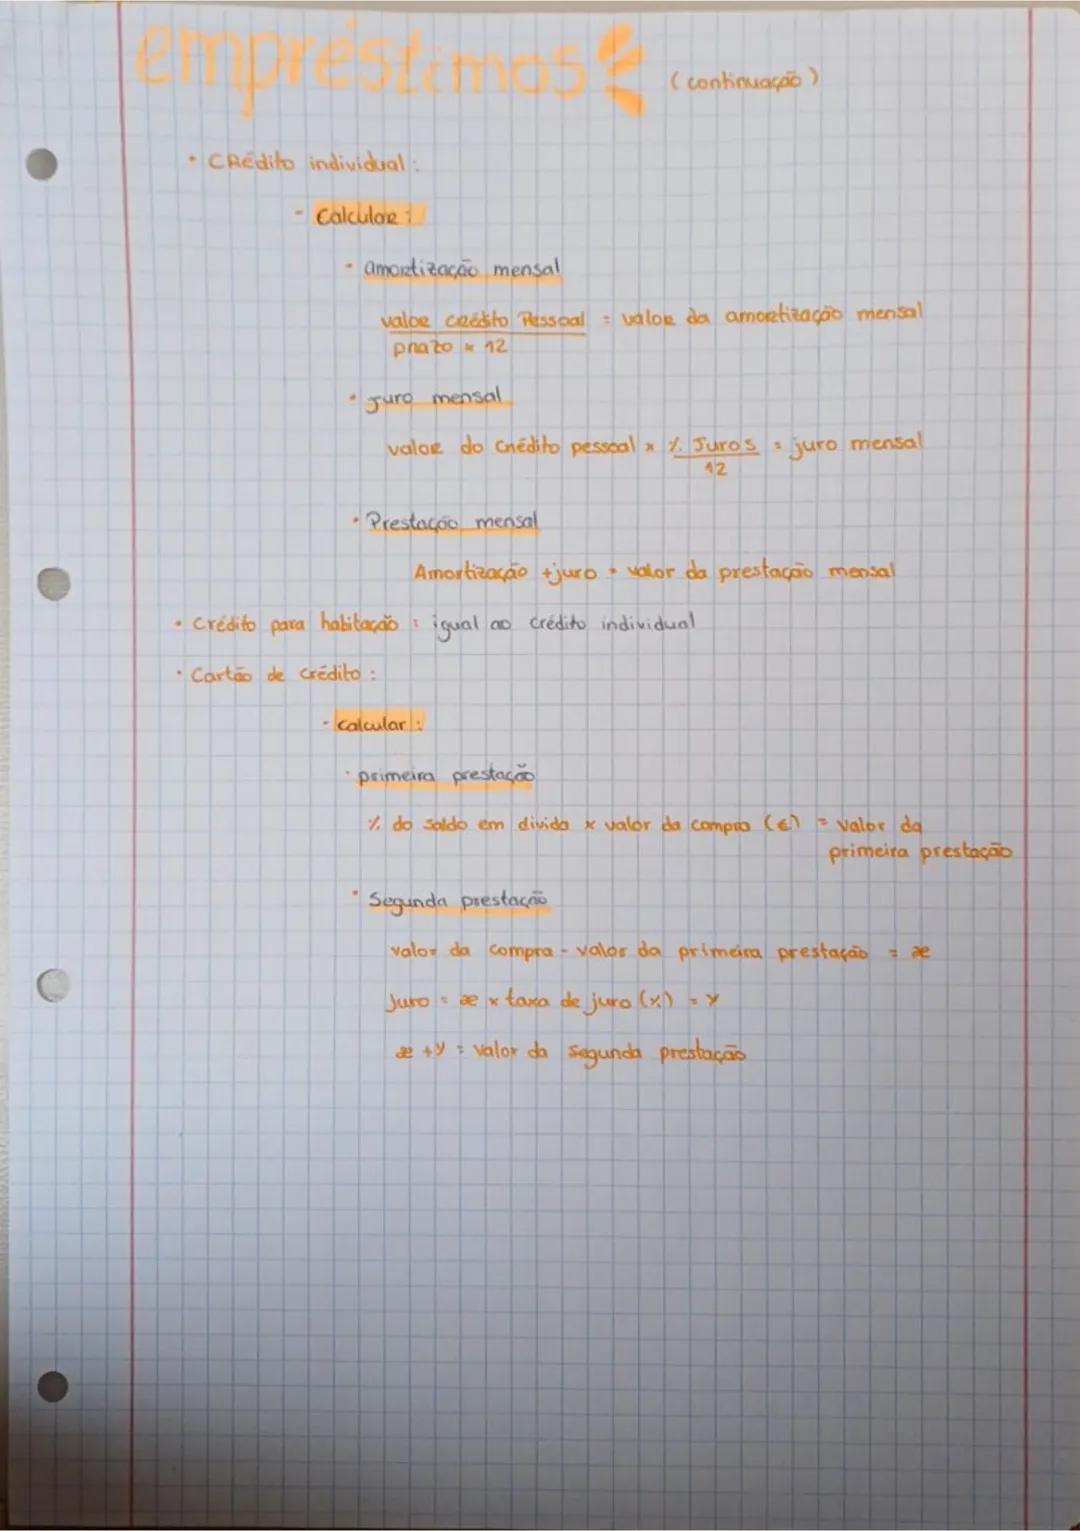 empréstimos (continuação)
• Crédito individual:
- Calcular:
• amortização mensal
valor crédito Pessoal = valor da amortização mensal
prazo x 12
• Juro mensal
valor do crédito pessoal x % Juros = juro mensal
12
• Prestação mensal
Amortização + juro = valor da prestação mensal
• Crédito para habitação: igual ao crédito individual
• Cartão de crédito:
- calcular:
• primeira prestação
% do saldo em divida x valor da compra (€) = valor da
primeira prestação
• Segunda prestação
valor da compra - valor da primeira prestação = æ
Juro = æ x taxa de juro (%) = y
æ + y = valor da segunda prestação